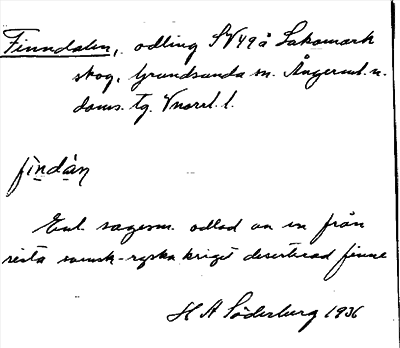 Finndalen, odling SV49å Lakamark
skog, Grundsunda sn. Ångerml. n.
doms. tg. Vnorrl. l.
findàn
Enl. sagesm. odlad av en från
sista svensk-ryska kriget deserterad finne
H A Söderberg 1936